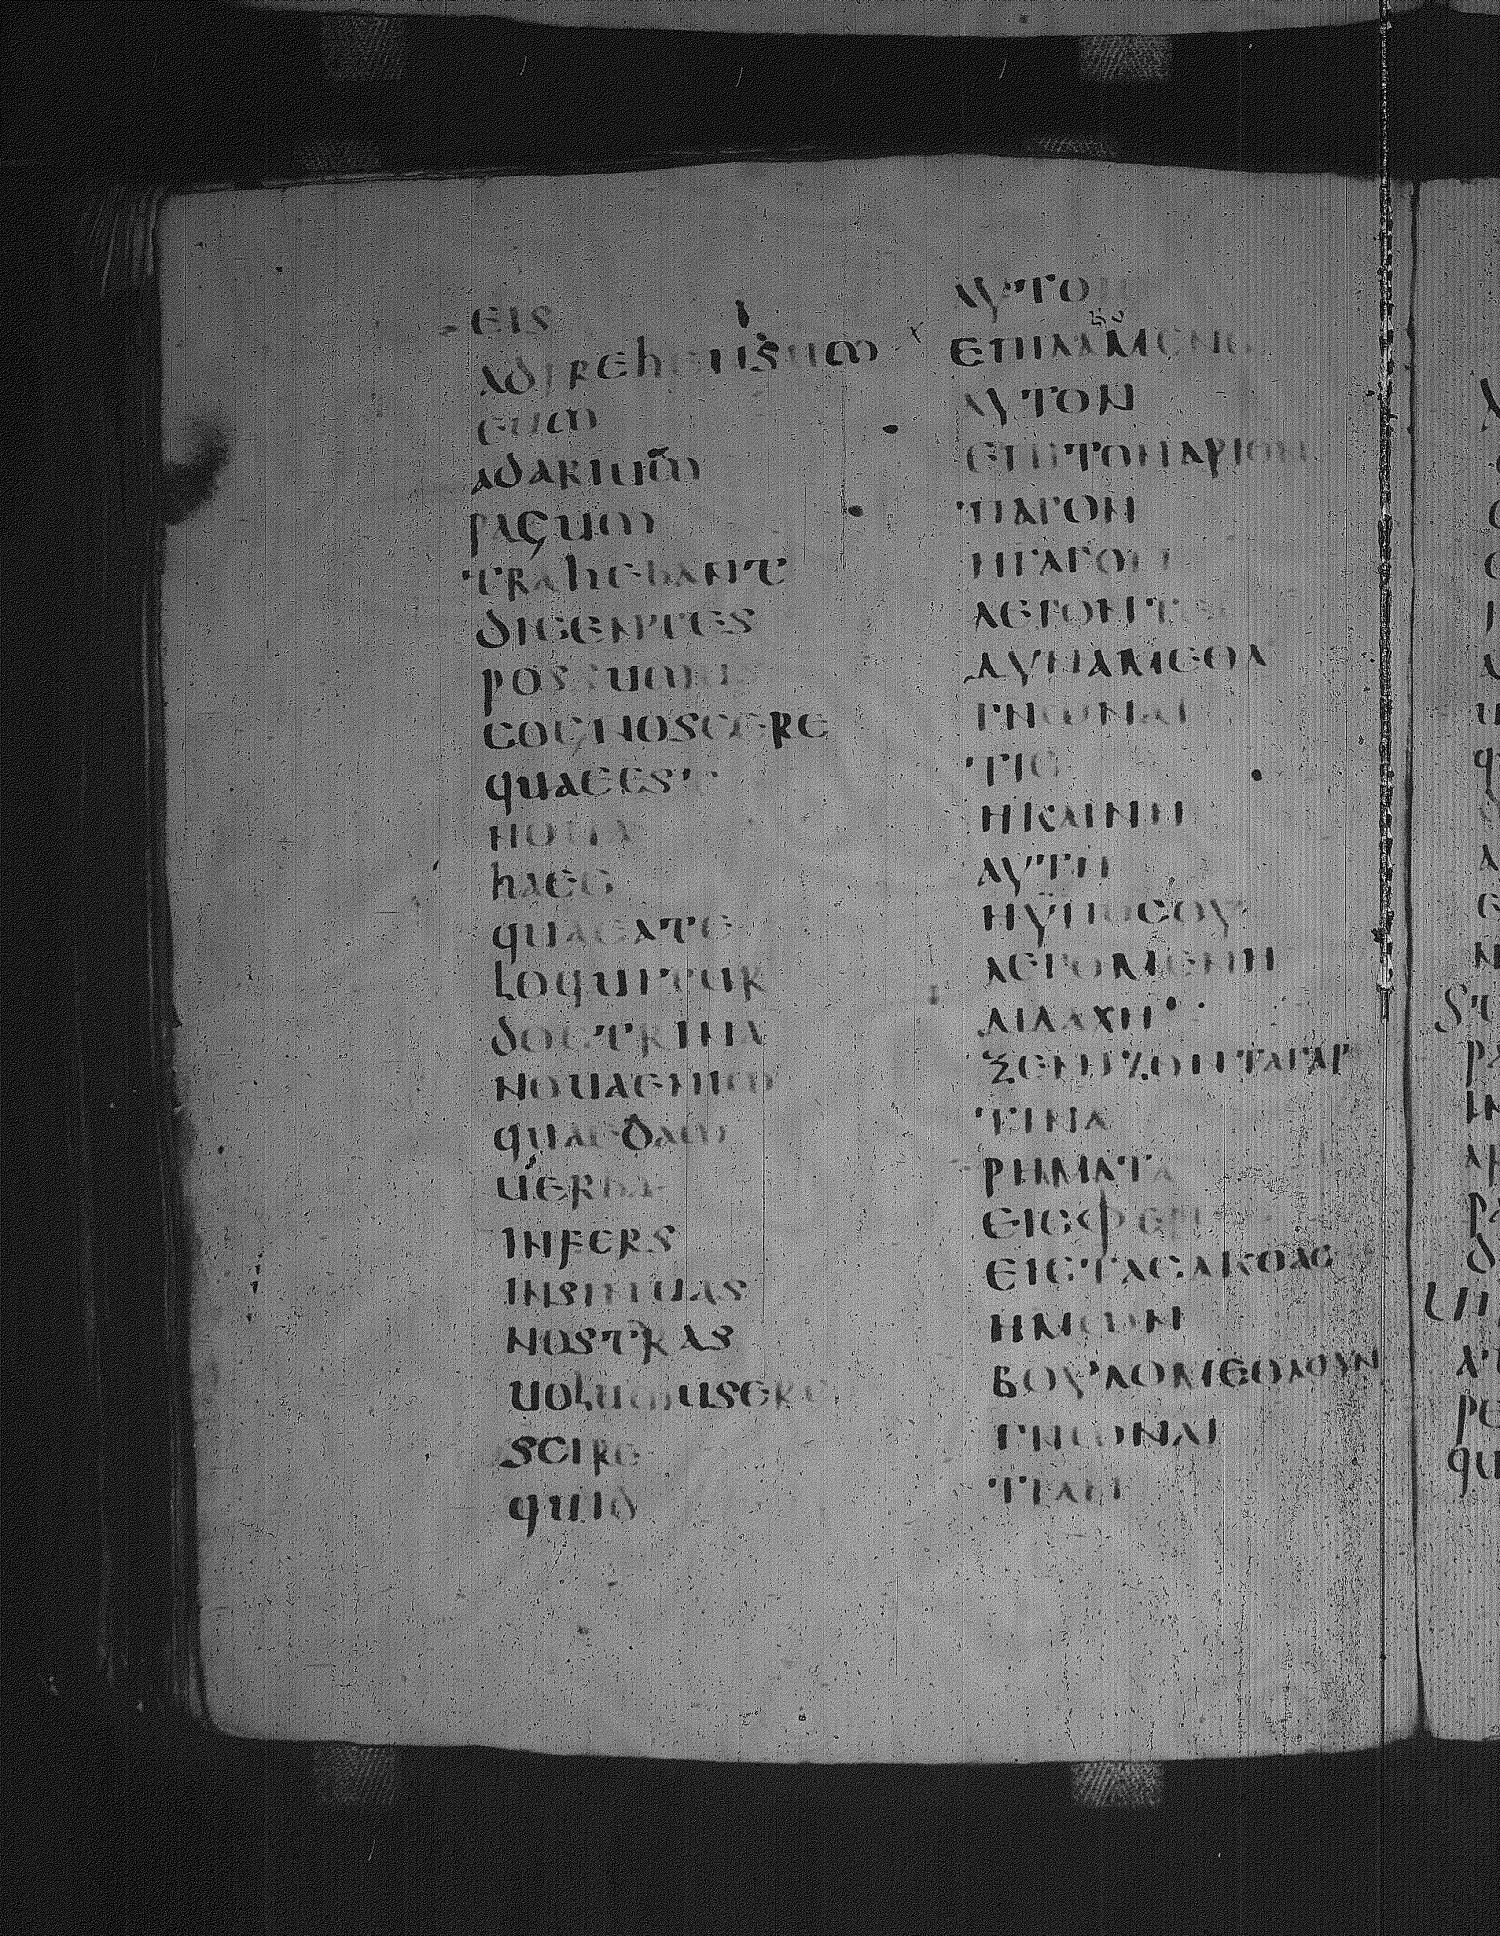 eis
adprehensum
eum
adarium
pagum
trahebant
dicentes
possumus
cognoscere
quaeest
noua
haec
quaeate
loquitur
doctrina
nouaenim
quaedam
uerba
infers
nostras
uolumusergo
scire
quid
ΑΥΤΟΙϹ
ΕΠΙΛΑΒΟΜΕΝΟΙ
ΑΥΤΟΝ
ΕΠΙΤΟΝΑΡΙΟΝ
ΠΑΓΟΝ
ΗΓΑΓΟΝ
ΛΕΓΟΝΤΕϹ
ΔΥΝΑΜΕΘΑ
ΓΝΩΝΑΙ
ΤΙϹ
ΗΚΑΙΝΗ
ΑΥΤΗ
ΗΫΠΟϹΟΥ
ΛΕΓΟΜΕΝΗ
ΔΙΔΑΧΗ·
ΞΕΝΙΖΟΝΤΑΓΑΡ
ΤΙΝΑ
ΡΗΜΑΤΑ
ΕΙϹΦΕΡΕΙϹ
ΕΙϹΤΑϹΑΚΟΑϹ
ΗΜΩΝ
ΒΟΥΛΟΜΕΘΑΟΥΝ
ΓΝΩΝΑΙ
ΤΙΑΝ